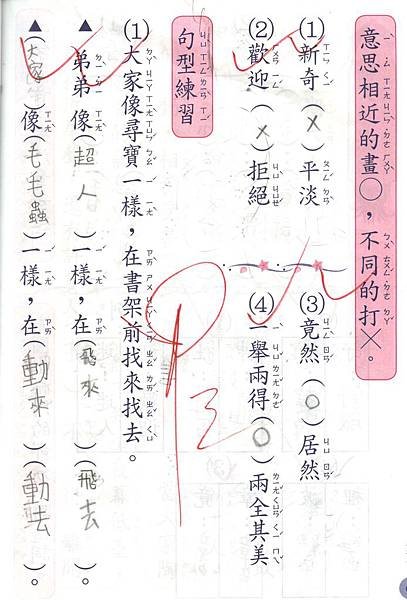 意思相近的畫○，不同的打×。
(1)新奇（×）平淡
(3)竟然（○）居然
(2)歡迎（×）拒絕
(4)一舉兩得（○）兩全其美
句型練習
(1)大家像尋寶一樣，在書架前找來找去。
▲弟弟像（超人）一樣，在（飛來）（飛去）。
▲（大家）像（毛毛蟲）一樣，在（動來）（動去）。